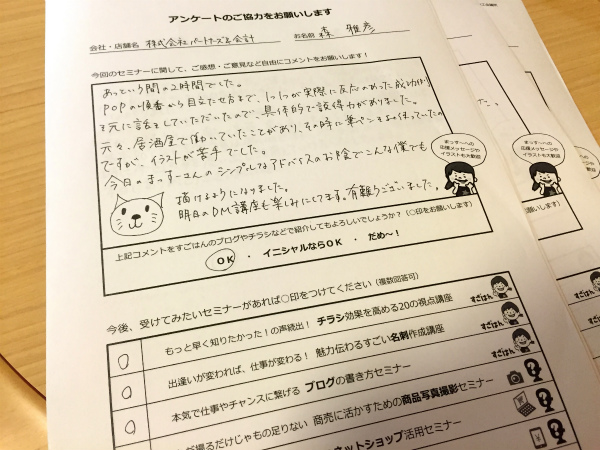 アンケートのご協力をお願いします
会社・店舗名 株式会社パートナーズ会計 お名前 森 雅彦
今回のセミナーに関して、ご感想・ご意見など自由にコメントをお願いします！
あっという間の2時間でした。
POPの順番から目立たせ方まで、1つ1つが実際に反応のあった成功例
を元に話をしていただいたので、具体的で説得力がありました。
元々、居酒屋で働いていたことがあり、その時に筆ペンもよく使っていたの
ですが、イラストが苦手でした。
今日のまっすーさんのシンプルなアドバイスのお陰でこんな僕でも
描けるようになりました。
明日のDM講座も楽しみにしてます。有難うございました。
まっすーへの
応援メッセージや
イラストも大歓迎
上記コメントをすごはんのブログやチラシなどで紹介してもよろしいでしょうか？（〇印をお願いします）
OK ・ イニシャルならOK ・ だめ～！
今後、受けてみたいセミナーがあれば〇印をつけてください（複数回答可）
もっと早く知りたかった！の声続出！ チラシ効果を高める20の視点講座
すごはん
出逢いが変われば、仕事が変わる！ 魅力伝わるすごい名刺作成講座
すごはん
本気で仕事やチャンスに繋げる ブログの書き方セミナー
すごはん
撮るだけじゃもの足りない 商売に活かすための商品写真撮影セミナー
ネットショップ活用セミナー
た。
まっすーへの
応援メッセージや
イラストも大歓迎
お願いします）
すごはん